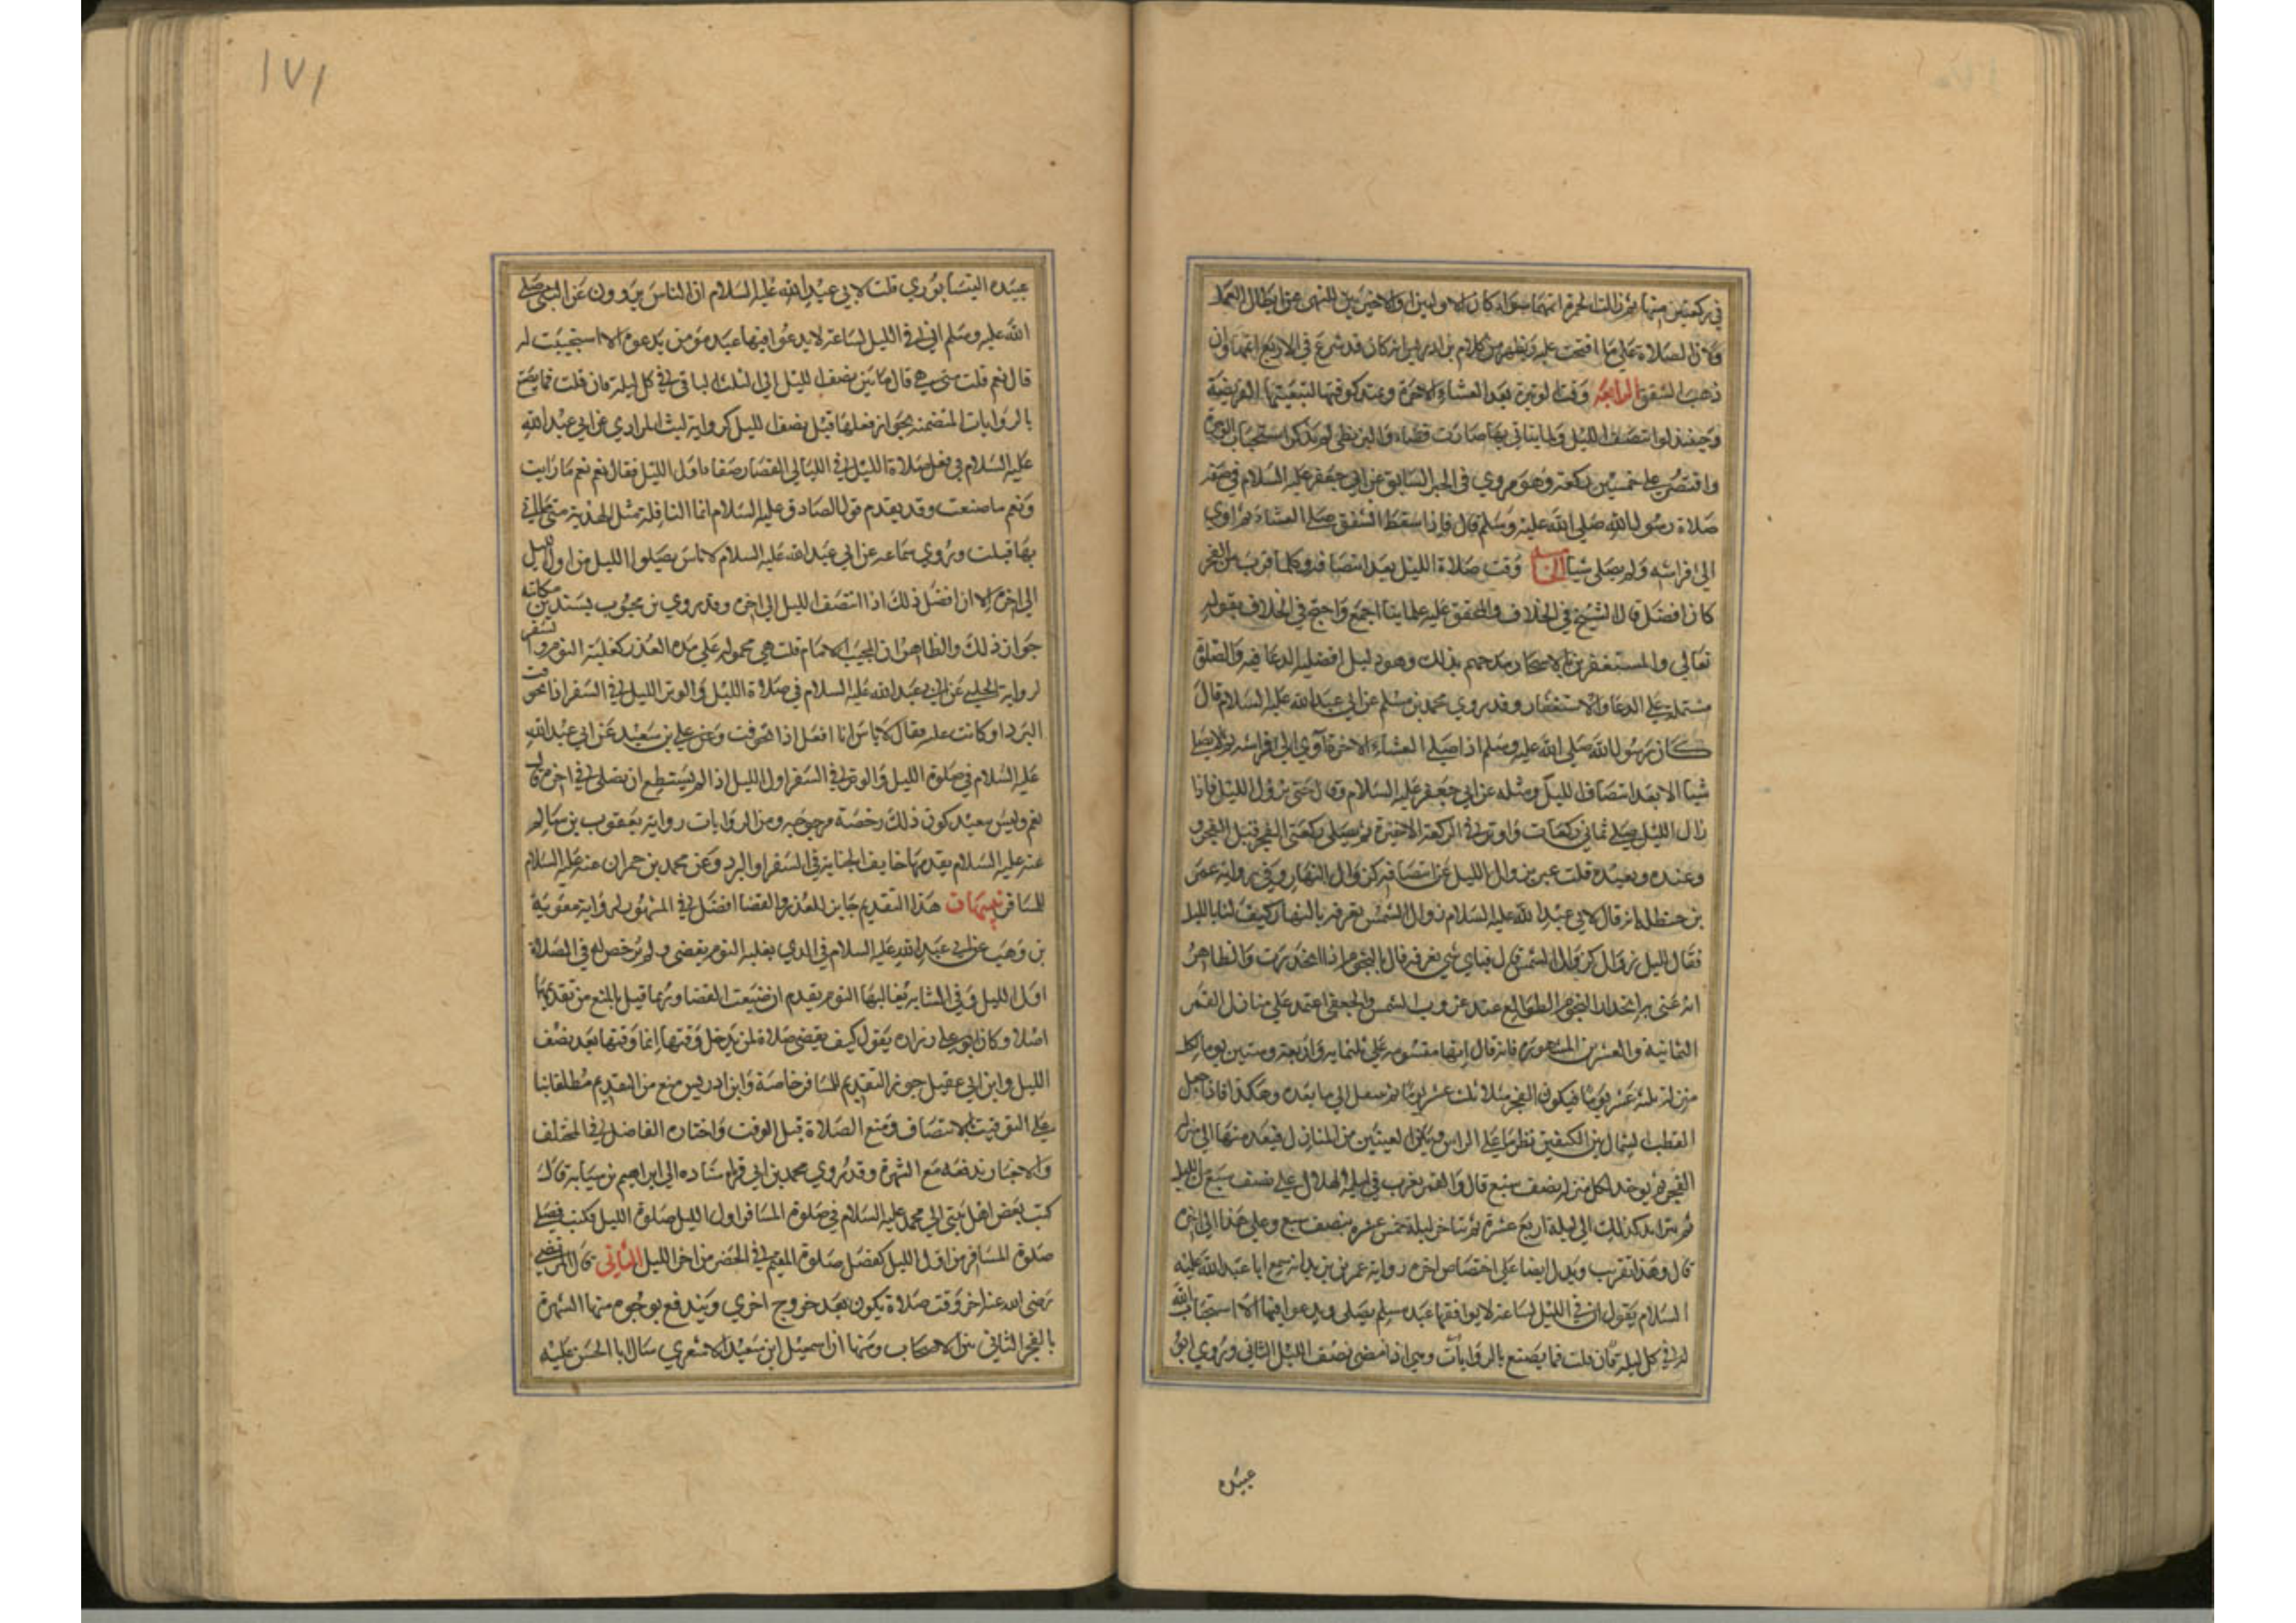 في ركعتين منها ثم زالت الحمرة اتمهما سواء كان الاوليين او الاخيرتين للنهي عن ابطال العمل
ولان الصلاة علي ما افتتحت عليه ويظهر من كلام بن ادريس انه ان كان قد شرع في الاربع اتمها وان
ذهب الشفق الرابعة وقت الوتيرة بعد العشاء الاخرة ويمتد كوقتها لتبعيتها الفريضة
وحينئذ لو انتصف الليل ولما ياتي بها صارت قضاء
واقتصر على خمسين ركعة وهو مروي في الخبر السابق عن ابي جعفر عليه السلام في صفة
صلاة رسول الله صلى الله عليه وسلم قال فاذا سقط الشفق صلى العشاء ثم اوي
الى فراشه ولم يصلي شيئا الخامسة وقت صلاة الليل بعد انتصافه وكلما قرب من الفجر
كان افضل قال الشيخ في الخلاف والمحقق عليه علماينا اجمع واحتج في الخلاف بقوله
تعالى والمستغفرين بالاسحار مدحهم بذلك وهو دليل افضلية الدعا فيه والصلوة
مشتملة على الدعا والاستغفار وقد روي محمد بن مسلم عن ابي عبد الله عليه السلام قال
كان رسول الله صلى الله عليه وسلم اذا صلى العشاء الاخرة آوى الى فراشه ثم لا يصلي
شيئا الا بعد انتصاف الليل ومثله عن ابي جعفر عليه السلام وقال حتى يزول الليل فاذا
زال الليل صلى ثماني ركعات واوتر في الركعة الاخيرة ثم يصلي ركعتي الفجر قبل الفجر و
وعنده وبعيده قلت عبر بزوال الليل عن انتصافه كزوال النهار وفي رواية عمر
بن حنظله انه قال لابي عبد الله عليه السلام زوال الشمس نعرفه بالنهار كيف لنا بالليل
فقال لليل زوال كزوال الشمس قال فباي شي نعرفه قال بالنجوم اذا انحدرت والظاهر
انه عنى به انحدار النجوم الطوالع عند غروب الشمس والجعفي اعتمد على منازل القمر
الثمانية والعشرين المشهورة فانه قال انها مقسومة على ثلثماية واربعة وستين يوما لكل
منزلة ثلثة عشر يوما فيكون الفجر مثلا ثلث عشر يوما ثم ينتقل الى ما بعده وهكذا فاذا جعل
القطب الشمالي بين الكتفين نظر ما على الراس وبين العينين من المنازل فيعد منها الى منزلة
الفجر ثم يوخذ لكل منزلة نصف سبع قال والقمر يغرب في ليلة الهلال على نصف سبع من الليل
ثم يتزايد كذلك الى ليلة اربع عشرة ثم يتاخر ليلة خمس عشرة بنصف سبع وعلى هذا الى اخره
قال وهذا تقريب ويدل ايضا على اختصاص اخره رواية عمر بن يزيد انه سمع ابا عبد الله عليه
السلام يقول ان في الليل لساعة لا يوافقها عبد مسلم يصلي ويدعوا فيها الا استجاب الله
له في كل ليلة فان قلت فما يصنع بالروايات وهي اذا مضى نصف الليل الثاني وروي ابو
عبيده
١٧١
عبيده النيسابوري قلت لابي عبد الله عليه السلام ان الناس يروون عن النبي صلى
الله عليه وسلم ان في الليل لساعة لا يدعوا فيها عبد مؤمن بدعوة الا استجيبت له
قال نعم قلت متى هي قال ما بين نصف الليل الى الثلث الباقي في كل ليلة فان قلت فما يصنع
بالروايات المتضمنه بجواز فعلها قبل نصف الليل كرواية ليث المرادي عن ابي عبد الله
عليه السلام في فعل صلاة الليل في الليالي القصار صفا ما اول الليل فقال نعم نعم ما رايت
ونعم ما صنعت وقد يقدم قول الصادق عليه السلام انما النافلة مثل الهدية متى ما اتي
بها قبلت وروي سماعه عن ابي عبد الله عليه السلام لا باس بصلوة الليل من اول الليل
الى اخره الا ان افضل ذلك اذا انتصف الليل الى اخره وقد روي بن محبوب بسندين مكاتبه
جواز ذلك والظاهر ان المجيب الامام قلت هي محموله على هذه العذر كغلبة النوم والسفر
لرواية الحلبي عن ابي عبد الله عليه السلام في صلاة الليل والوتر اول الليل في السفر اذا تخوفت
البرد او كانت علة فقال لا باس انا افعل اذا تخوفت وعن علي بن سعيد عن ابي عبد الله
عليه السلام في صلوة الليل والوتر في السفر اول الليل اذا لم يستطع ان يصلي في اخره قال
نعم وليس ببعيد كون ذلك رخصة مرجوحة ومن الروايات رواية يعقوب بن سالم
عنه عليه السلام يقدمها خايف الجنابة في السفر او البرد وعن محمد بن حمران عنه عليه السلام
للمسافر تنبيهات هذا التقديم جايز للعذر والقضا افضل في المشهور لرواية معوية
بن وهب عن ابي عبد الله عليه السلام في الذي يغلبه النوم يقضي ولم يرخص له في الصلاة
اول الليل وفي الشابه يغالبها النوم يقدم ان ضيعت القضا وربما قيل بالمنع من تقديمها
اصلا وكان ابو علي زراره يقول كيف يقضي صلاة لم يدخل وقتها انما وقتها بعد نصف
الليل وابن ابي عقيل جوز التقديم للمسافر خاصة وابن ادريس منع من التقديم مطلقا بنا
على التوقيت بالانتصاف ومنع الصلاة قبل الوقت واختاره الفاضل في المختلف
والاخبار تدفعه مع الشهرة وقد روي محمد بن ابي قره باسناده الى ابراهيم بن سيابة قال
كتب بعض اهل بيتي الى ابي محمد عليه السلام في صلوة المسافر اول الليل صلوة الليل فكتب فضل
صلوة المسافر من اول الليل كفضل صلوة المقيم في الحضر من اخر الليل الثاني قال المرتضي
رضى الله عنه اخر وقت صلاة يكون بعد خروج اخري ويندفع بوجوه منها الشهرة
بالفجر الثاني بين الاصحاب ومنها ان اسمعيل بن سعيد الاشعري سال ابا الحسن عليه